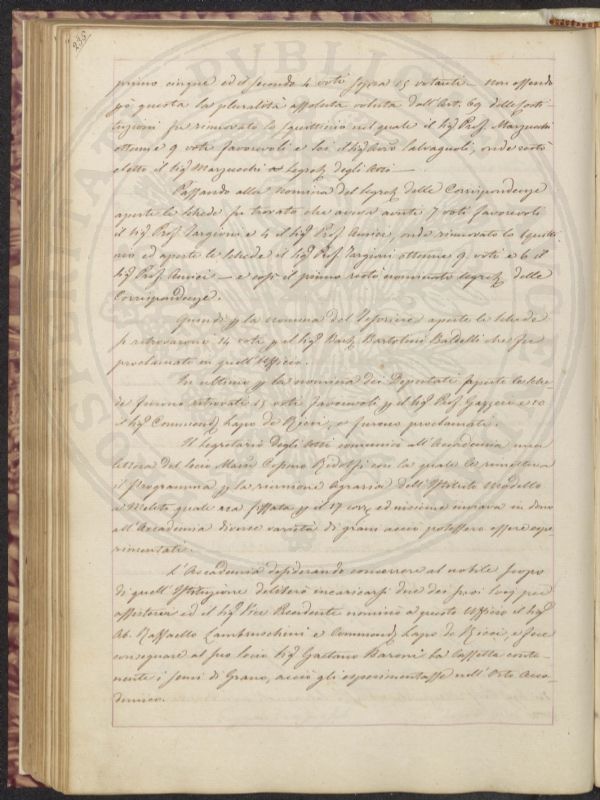 236
primo cinque ed il secondo 4 voti sopra 15 votanti — non essendo
pò questa la pluralità assoluta voluta dall'Art. 69 delle Costi-
tuzioni fu rinnovato lo squittinio nel quale il Sigr Prof. Marzucchi
ottenne 9 voti favorevoli e lui il Sigr Salvagnoli, onde restò
eletto il Sigr Marzucchi a Segreto degli Atti —
Passando alla nomina del Segreto delle Corrispondenze
aperte le schede fu trovato che aveva avuti 7 voti favorevoli
il Sigr Prof. Targioni e 4 il Sigr Prof. Amici, onde rinnovato lo squitti-
nio ed aperte le schede il Sigr Prof. Targioni ottenne 9 voti e 6 il
Sigr Prof. Amici — e così il primo restò nominato Segreto delle
Corrispondenze.
Quindi p la nomina del Tesoriere aperte le schede
si ritrovarono 14 voti p il Sigr Bartolini Baldelli che fu
proclamato in quell'Uffizio.
In ultimo p la nomina dei Deputati aperte le sche-
de furono ritrovati 15 voti favorevoli p il Sigr Prof. Gazzeri e 10
il Sigr Commend Lapo de Ricci, e furono proclamati.
Il Segretario degli Atti comunicò all'Accademia una
lettera del Socio March Cosimo Ridolfi con la quale le rimetteva
il Programma p la riunione Agraria dell'Istituto modello
a Meleto quale era fissata p il 17 corr ed insieme inviava in dono
all'Accademia diverse varietà di grani acciò potessero essere espe-
rimentati.
L'Accademia desiderando concorrere al nobile scopo
di quell'Istituzione deliberò incaricarsi due dei suoi Socj per
assistervi ed il Sigr Vice Presidente nominò a questo Uffizio il Sigr
Ab. Raffaello Lambruschini e Commend Lapo de Ricci, e fece
consegnare al suo Socio Sigr Gaetano Baroni la Cassetta conte-
nente i semi di Grano, acciò gli esperimentasse nell'Orto Acca-
demico.